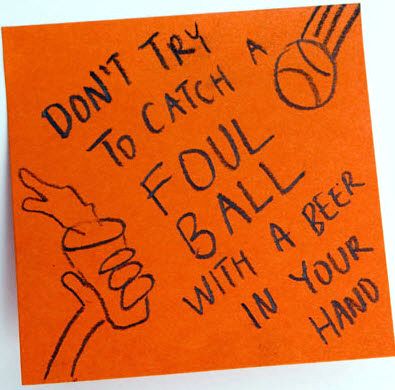 DON'T TRY
TO CATCH A
FOUL
BALL
WITH A BEER
IN YOUR
HAND